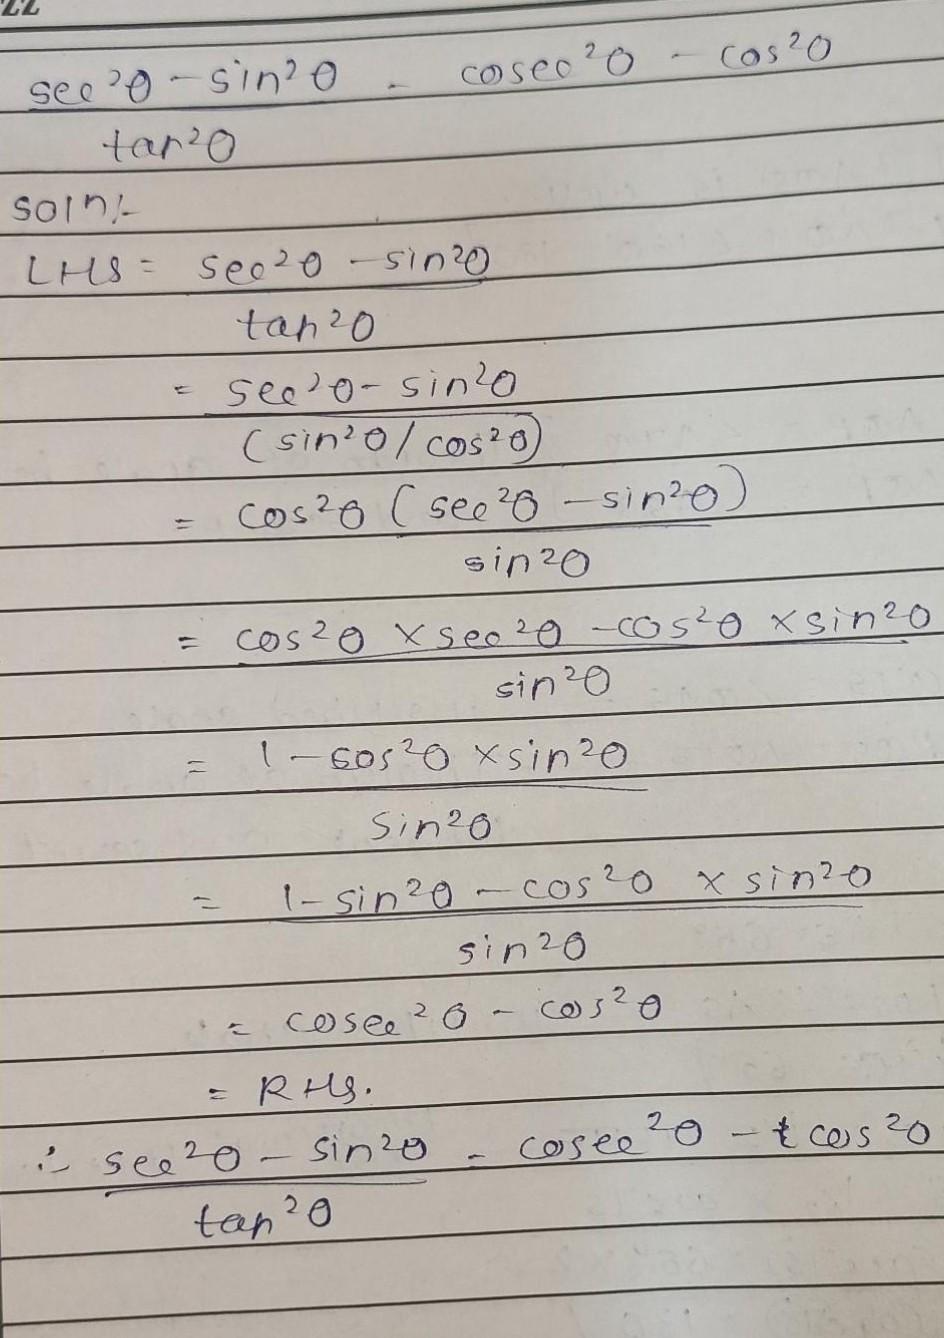 ZZ
sec²θ - sin²θ - cosec²θ - cos²θ
tan²θ
Soln:-
LHS = sec²θ - sin²θ
tan²θ
= sec²θ - sin²θ
(sin²θ/cos²θ)
= cos²θ (sec²θ - sin²θ)
sin²θ
= cos²θ × sec²θ - cos²θ × sin²θ
sin²θ
= 1 - cos²θ × sin²θ
sin²θ
= 1 - sin²θ - cos²θ × sin²θ
sin²θ
= cosec²θ - cos²θ
= RHS.
∴ sec²θ - sin²θ - cosec²θ - t cos²θ
tan²θ